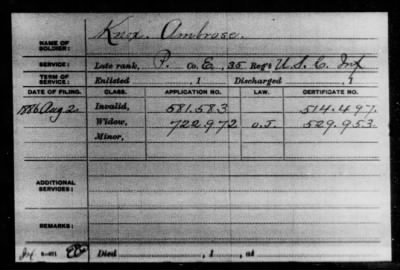 Knox, Ambrose.
NAME OF SOLDIER:
SERVICE: Late rank, P. Co. E, 35 Reg't U.S.C. Inf
TERM OF SERVICE: Enlisted , 1 Discharged , 1
DATE OF FILING. CLASS. APPLICATION NO. LAW. CERTIFICATE NO.
1886 Aug 2 Invalid, 581.583 514.497.
Widow, 722.972 O.L. 529.953.
Minor,
ADDITIONAL SERVICES:
REMARKS:
Died , 1 , at